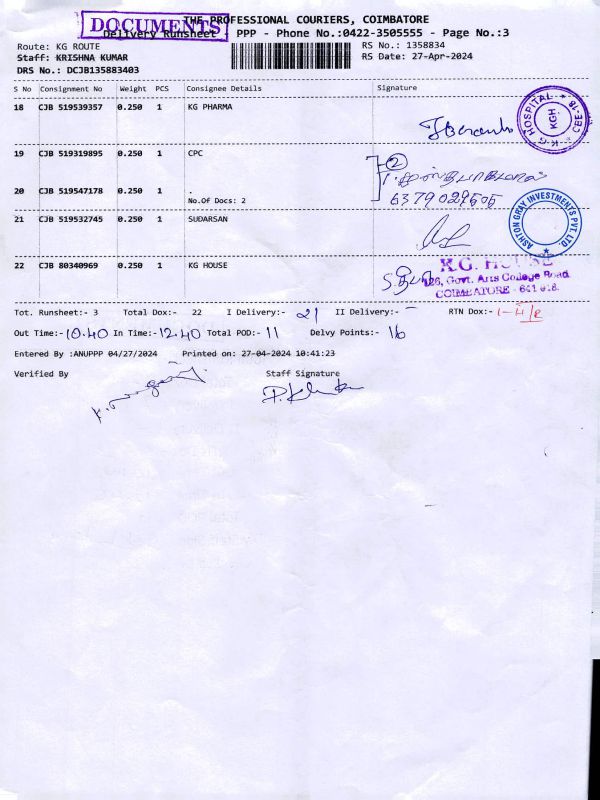 DOCUMENTS
THE PROFESSIONAL COURIERS, COIMBATORE
Delivery Runsheet PPP - Phone No.:0422-3505555 - Page No.:3
Route: KG ROUTE RS No.: 1358834
Staff: KRISHNA KUMAR RS Date: 27-Apr-2024
DRS No.: DCJB135883403
S No Consignment No Weight PCS Consignee Details Signature
18 CJB 519539357 0.250 1 KG PHARMA
K.G HOSPITAL CBE-18 KGH
19 CJB 519319895 0.250 1 CPC
2
20 CJB 519547178 0.250 1 .
No.Of Docs: 2
21 CJB 519532745 0.250 1 SUDARSAN
ASHTON GRAY INVESTMENTS PVT. LTD
22 CJB 80340969 0.250 1 KG HOUSE
K.G. HOUSE
126, Govt. Arts College Road,
COIMBATORE - 641 018.
Tot. Runsheet:- 3 Total Dox:- 22 I Delivery:- 21 II Delivery:- - RTN Dox:-
Out Time:- 10.40 In Time:- 12.40 Total POD:- 11 Delvy Points:- 16
Entered By :ANUPPP 04/27/2024 Printed on: 27-04-2024 10:41:23
Verified By Staff Signature